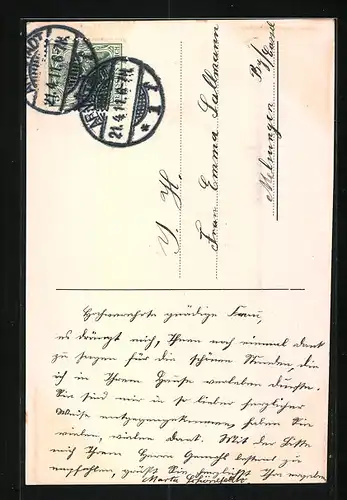 21.4.11.6-7N.
21.4.11.6-7N.
I. H.
Frau Emma Sallmann
Melsungen
Bz/Cassel
Hochverehrte gnädige Frau,
es drängt mich, Ihnen noch einmal dank
zu sagen für die schönen Stunden, die
ich in Ihrem Hause verleben durfte.
Sie sind mir in so lieber herzlicher
Weise entgegengekommen, haben Sie
vielen, vielen dank. Mit der Bitte
mich Ihrem Herrn Gemahl bestens zu
empfehlen, grüßt Sie herzlichst Ihre ergebene
Marta